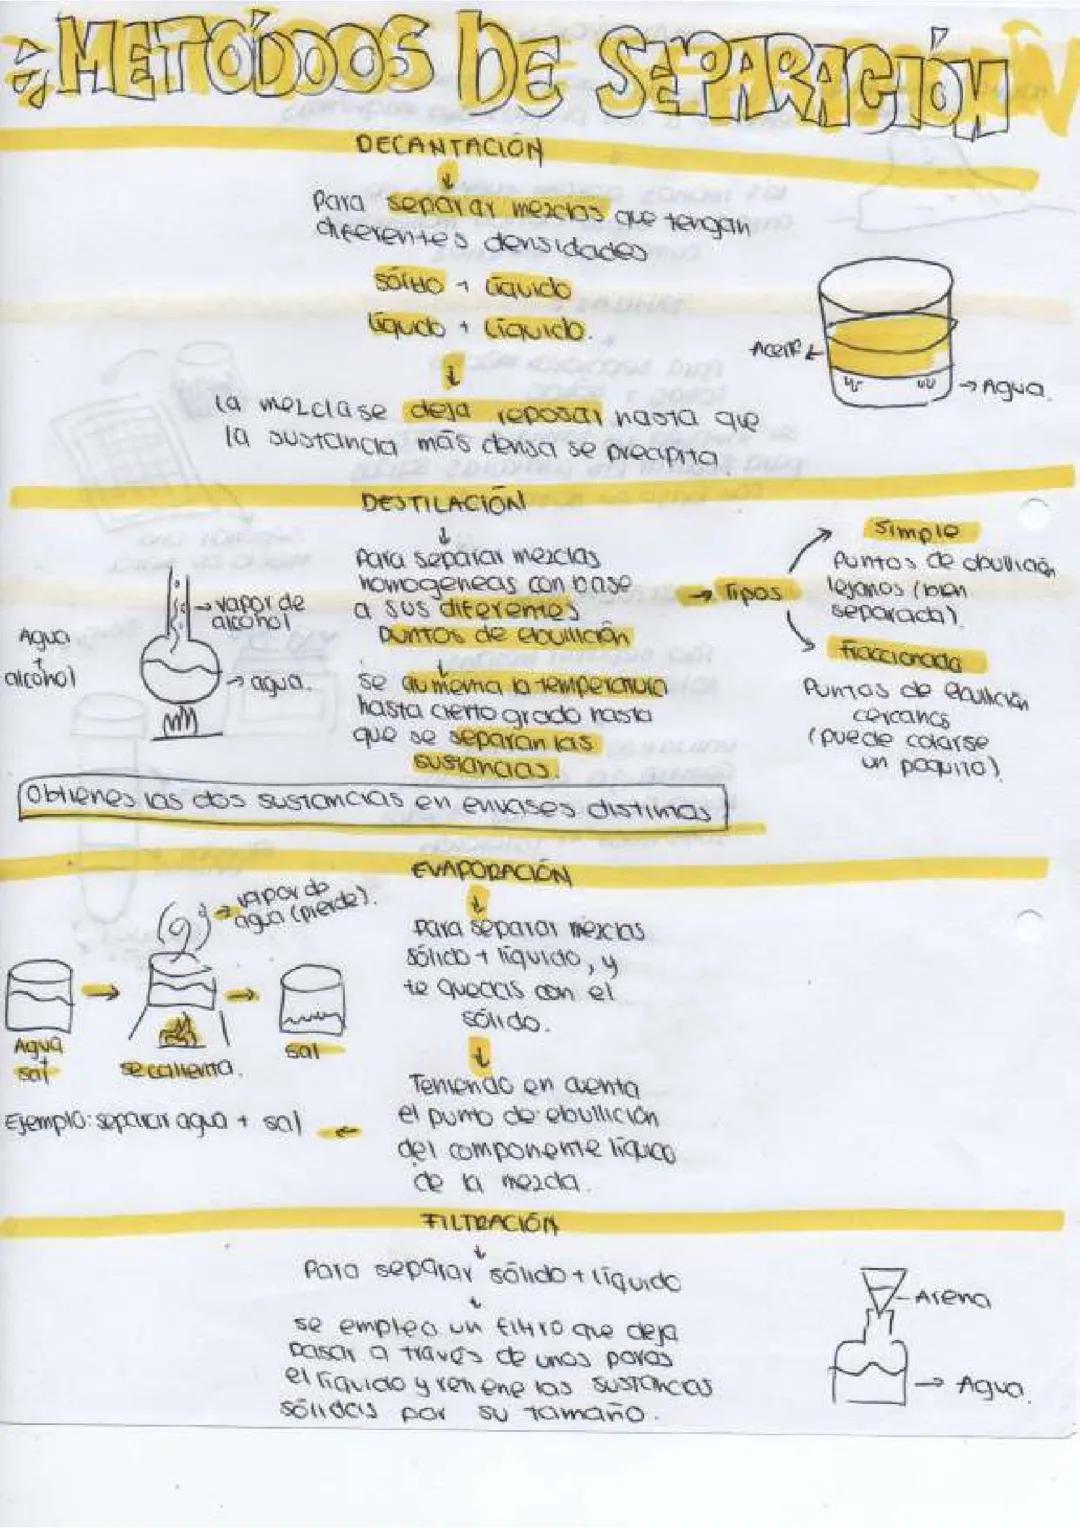 METÓDOS DE SEPARACIÓN
DECANTACIÓN
Para separar mezclas que tengan
diferentes densidades
sólido + líquido
líquido + líquido.
Aceite
Agua.
la mezcla se deja reposar hasta que
la sustancia más densa se precipita
DESTILACIÓN
Para separar mezclas
homogeneas con base
a sus diferentes
puntos de ebullición
se aumenta la temperatura
hasta cierto grado hasta
que se separan las
sustancias.
Agua
+
alcohol
vapor de
alcohol
agua.
Tipos
Simple
Puntos de ebullición
lejanos (bien
separada).
Fraccionada
Puntos de ebullición
cercanos
(puede colarse
un poquito).
Obtienes las dos sustancias en envases distintos
EVAPORACIÓN
para separar mezclas
sólido + líquido, y
te quedas con el
sólido.
Teniendo en cuenta
el punto de ebullición
del componente líquido
de la mezcla.
vapor de
agua (pierde).
Agua
+
sal
se calienta.
sal
Ejemplo: separar agua + sal
FILTRACIÓN
Para separar sólido + líquido
se emplea un filtro que deja
pasar a través de unos poros
el líquido y retiene las sustancias
sólidas por su tamaño.
Arena
Agua.